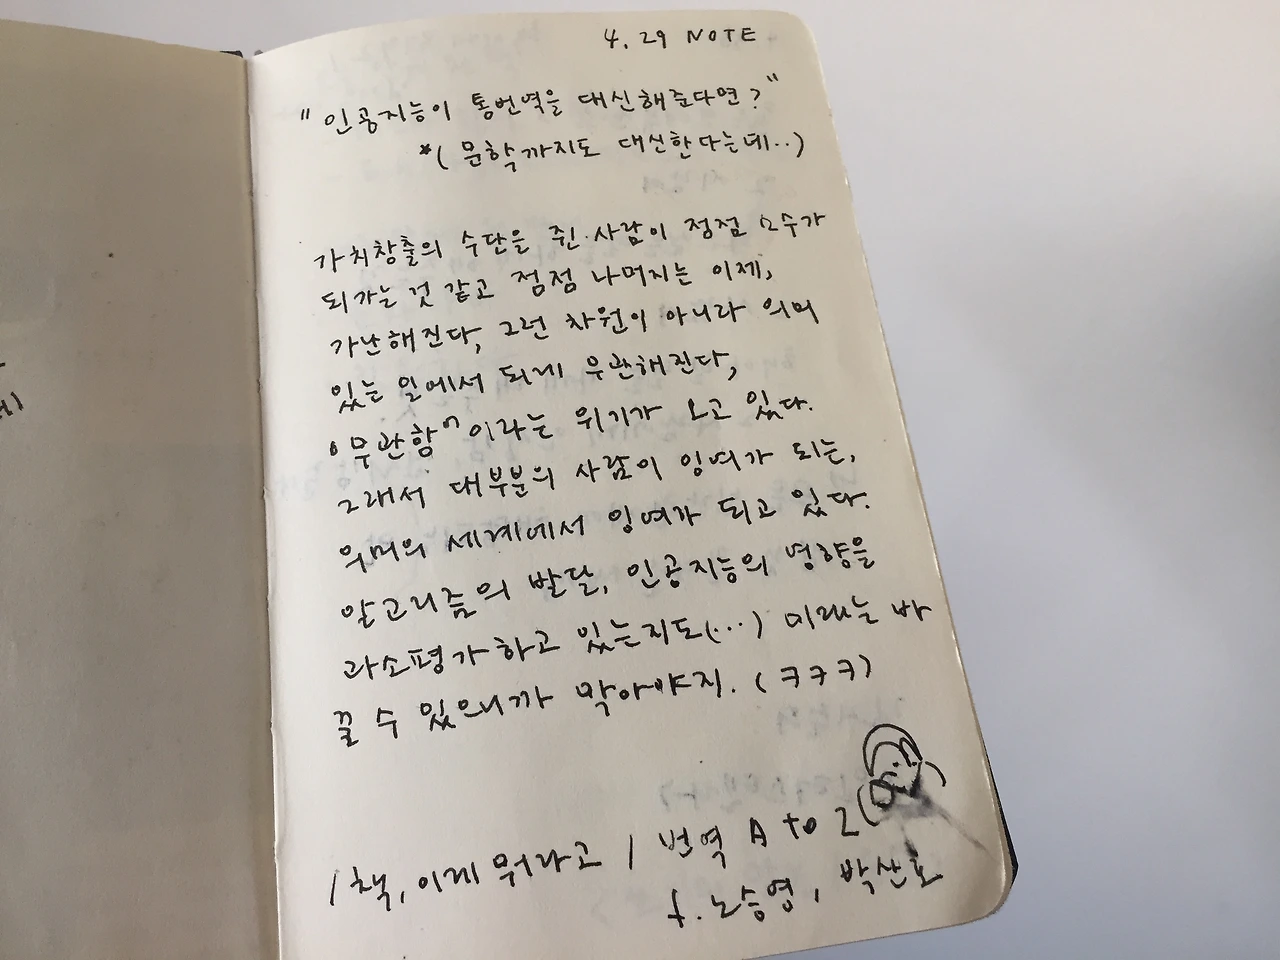 4. 29 NOTE
"인공지능이 통번역을 대신해준다면?"
*( 문학까지도 대신한다는데..)
가치창출의 수단을 쥔 사람이 점점 소수가
되가는 것 같고 점점 나머지는 이제,
가난해진다, 그런 차원이 아니라 의미
있는 일에서 되게 무관해진다,
"무관함"이라는 위기가 오고 있다.
그래서 대부분의 사람이 잉여가 되는,
의미의 세계에서 잉여가 되고 있다.
알고리즘의 발달, 인공지능의 영향을
과소평가하고 있는지도(...) 미래는 바
꿀 수 있으니까 막아야지. (ㅋㅋㅋ)
/ 책, 이게 뭐라고 / 번역 A to Z
f. 노승영, 박산호